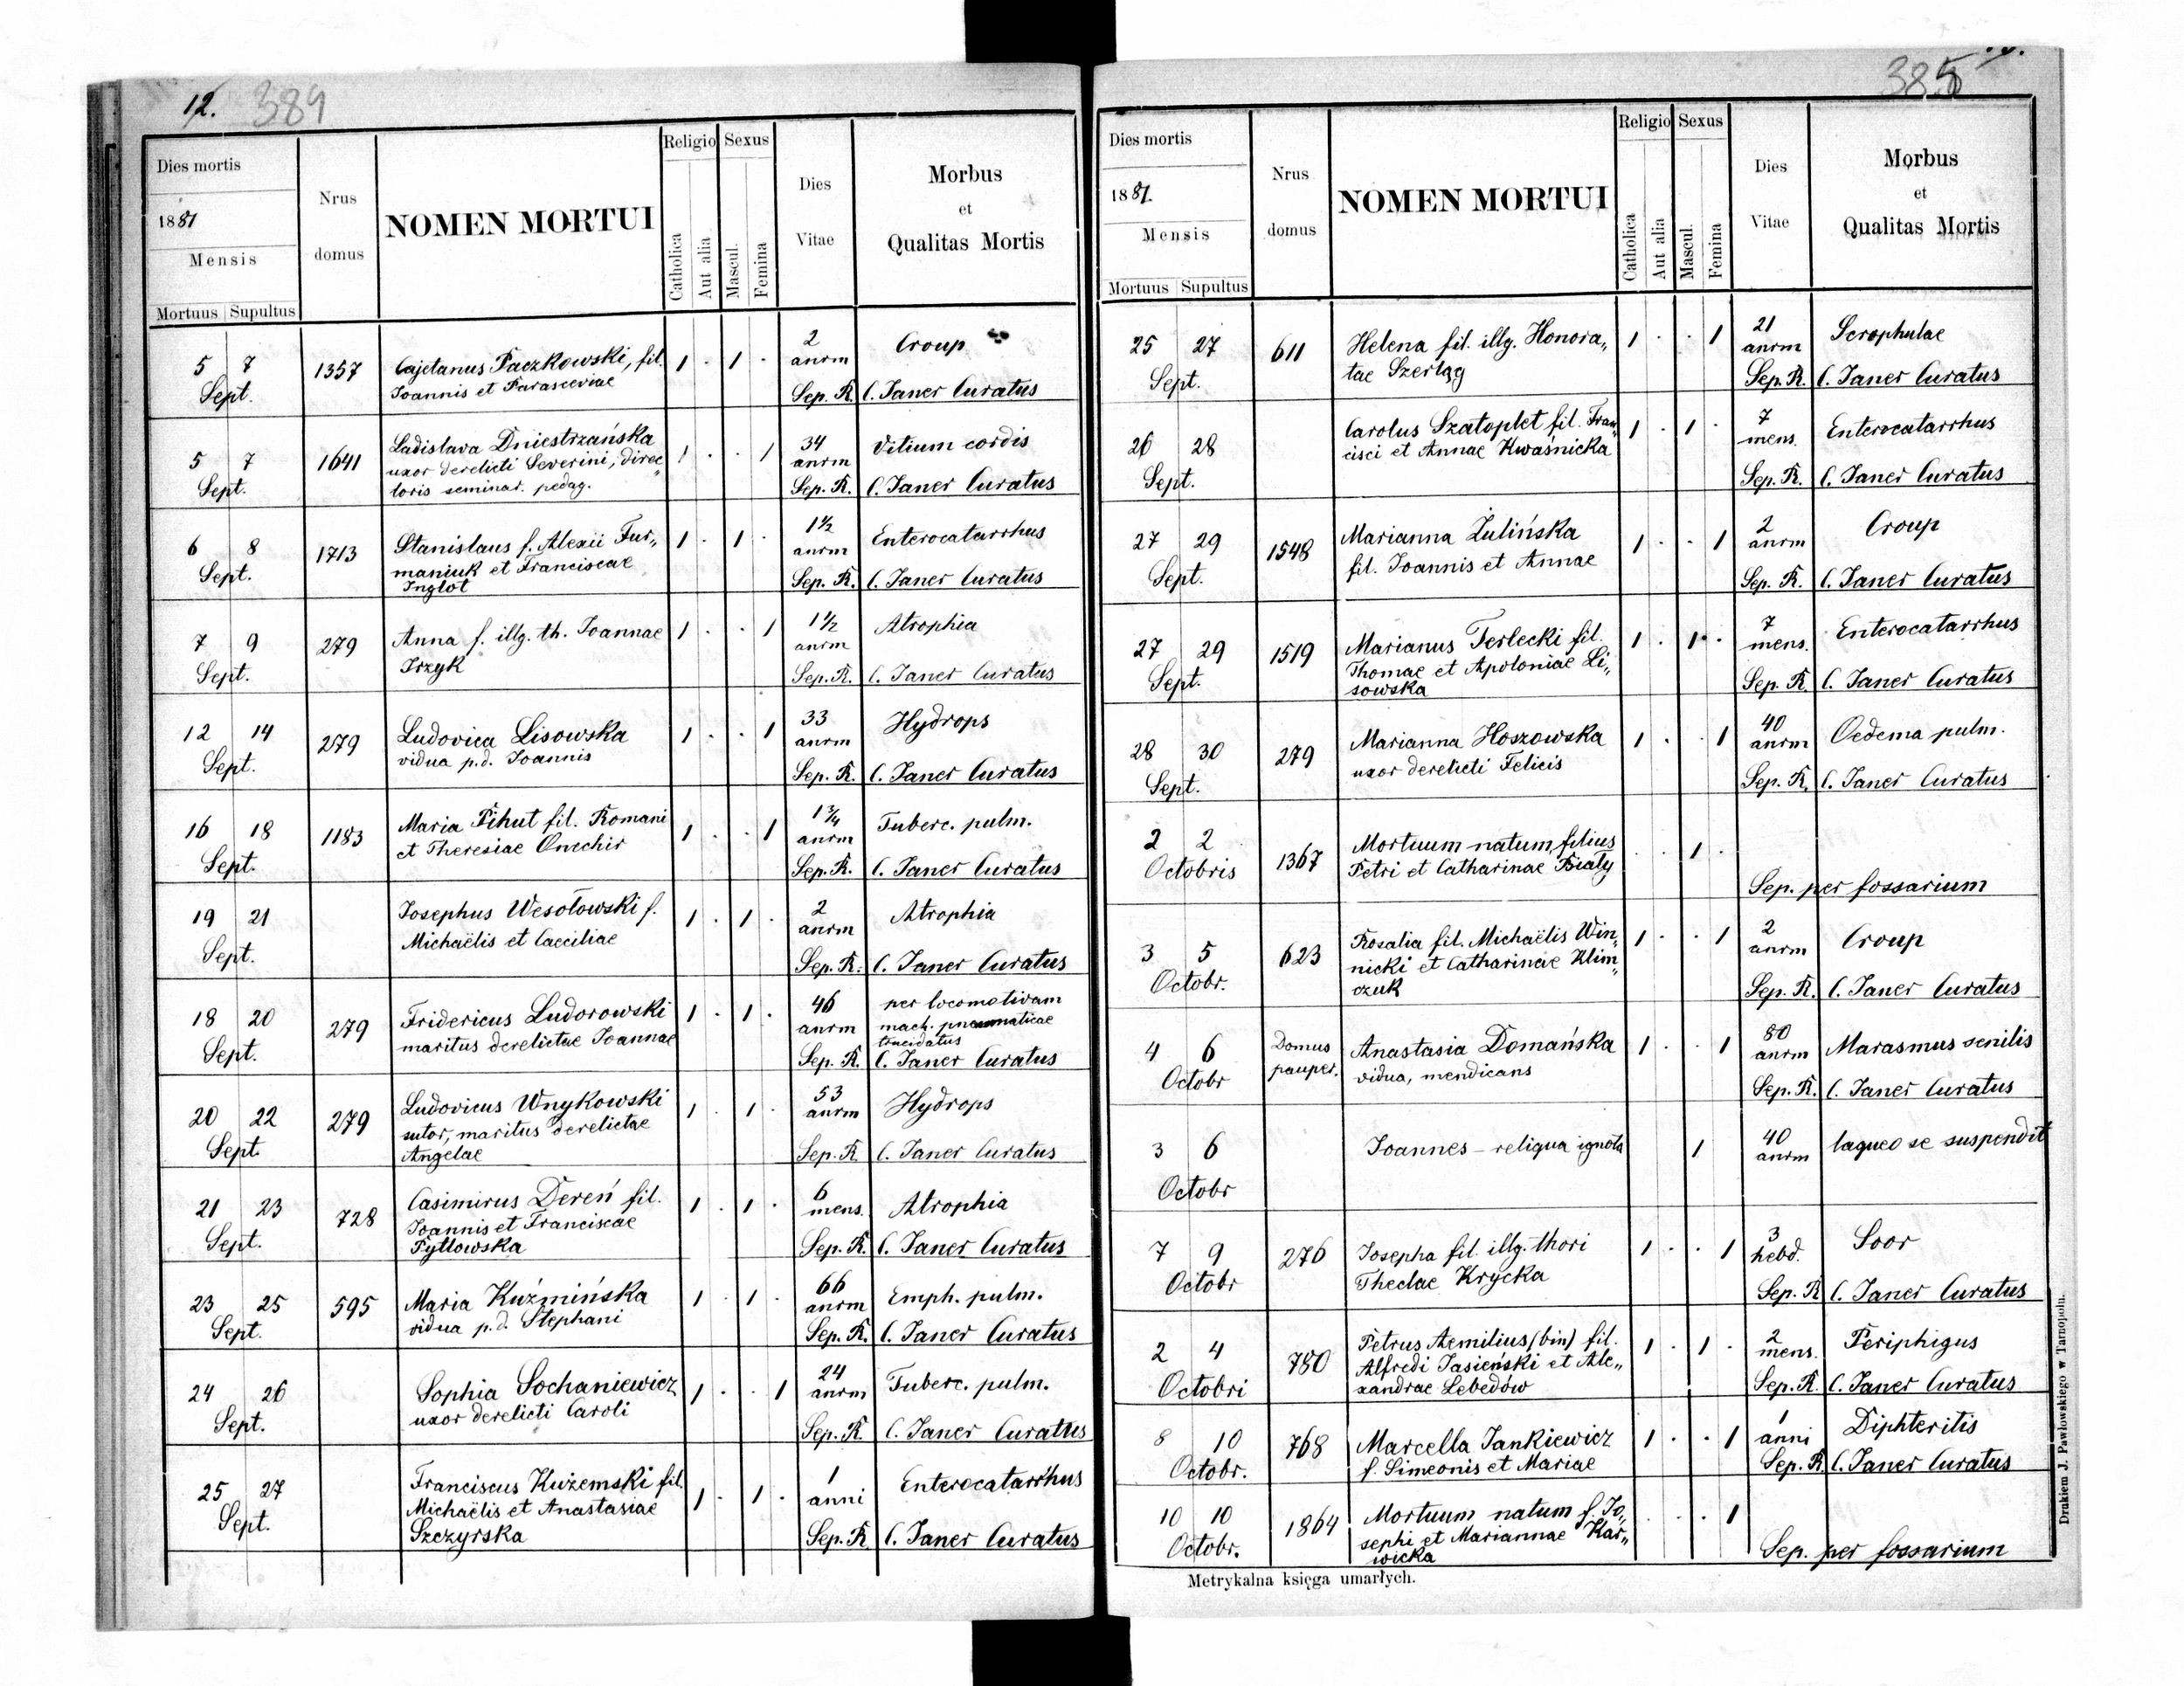 12. 384
Dies mortis
1881
Mensis
Mortuus Supultus
Nrus
domus
NOMEN MORTUI
Religio
Catholica
Aut alia
Sexus
Mascul.
Femina
Dies
Vitae
Morbus
et
Qualitas Mortis
5 7 1357 Cajetanus Paczkowski, fil. 1 . 1 . 2 Croup
Sept. Joannis et Parasceviae anrm
Sep. R. C. Janer Curatus
5 7 1641 Ladislava Dniestrzańska 1 . . 1 34 Vitium cordis
Sept. uxor derelicti Severini, direc„ anrm
toris seminar. pedag. Sep. R. C. Janer Curatus
6 8 1713 Stanislaus f. Alexii Fur„ 1 . 1 . 1½ Enterocatarrhus
Sept. maniuk et Franciscae anrm
Inglot Sep. R. C. Janer Curatus
7 9 279 Anna f. illg. th. Joannae 1 . . 1 1½ Atrophia
Sept. Irzyk anrm
Sep. R. C. Janer Curatus
12 14 279 Ludovica Lisowska 1 . . 1 33 Hydrops
Sept. vidua p.d. Joannis anrm
Sep. R. C. Janer Curatus
16 18 1183 Maria Pihut fil. Romani 1 . . 1 1¾ Tuberc. pulm.
Sept. et Theresiae anrm
Sep. R. C. Janer Curatus
19 21 Josephus Wesołowski f. 1 . 1 . 2 Atrophia
Sept. Michaëlis et Caeciliae anrm
Sep. R. C. Janer Curatus
18 20 279 Fridericus Ludorowski 1 . 1 . 46 per locomotivam
Sept. maritus derelictae Joannae anrm mach. pneumaticae
trucidatus
Sep. R. C. Janer Curatus
20 22 279 Ludovicus Wnykowski 1 . 1 . 53 Hydrops
Sept. sutor, maritus derelictae anrm
Angelae Sep. R. C. Janer Curatus
21 23 728 Casimirus Dereń fil. 1 . 1 . 6 Atrophia
Sept. Joannis et Franciscae mens.
Pytlowska Sep. R. C. Janer Curatus
23 25 595 Maria Kuźmińska 1 . 1 . 66 Emph. pulm.
Sept. vidua p.d. Stephani anrm
Sep. R. C. Janer Curatus
24 26 Sophia Sochaniewicz 1 . . 1 24 Tuberc. pulm.
Sept. uxor derelicti Caroli anrm
Sep. R. C. Janer Curatus
25 27 Franciscus Kużemski fil. 1 . 1 . 1 Enterocatarrhus
Sept. Michaëlis et Anastasiae anni
Szczyrska Sep. R. C. Janer Curatus
385
Dies mortis
1881
Mensis
Mortuus Supultus
Nrus
domus
NOMEN MORTUI
Religio
Catholica
Aut alia
Sexus
Mascul.
Femina
Dies
Vitae
Morbus
et
Qualitas Mortis
25 27 611 Helena fil. illg. Honora„ 1 . . 1 21 Scrophulae
Sept. tae Szerląg anrm
Sep. R. C. Janer Curatus
26 28 Carolus Szatoplet fil. Fran„ 1 . 1 . 7 Enterocatarrhus
Sept. cisci et Annae Kwaśnicka mens.
Sep. R. C. Janer Curatus
27 29 1548 Marianna Żulińska 1 . . 1 2 Croup
Sept. fil. Joannis et Annae anrm
Sep. R. C. Janer Curatus
27 29 1519 Marianus Terlecki fil. 1 . 1 . 7 Enterocatarrhus
Sept. Thomae et Apoloniae Li„ mens.
sowska Sep. R. C. Janer Curatus
28 30 279 Marianna Hoszowska 1 . . 1 40 Oedema pulm.
Sept. uxor derelicti Felicis anrm
Sep. R. C. Janer Curatus
2 2 1367 Mortuum natum, filius . . 1 .
Octobris Petri et Catharinae Biały
Sep. per fossarium
3 5 623 Rosalia fil. Michaëlis Win„ 1 . . 1 2 Croup
Octobr. nicki et Catharinae Klim„ anrm
czuk Sep. R. C. Janer Curatus
4 6 Domus Anastasia Domańska 1 . . 1 80 Marasmus senilis
Octobr pauper. vidua, mendicans anrm
Sep. R. C. Janer Curatus
3 6 Joannes – reliqua ignota 1 40 laqueo se suspendit
Octobr anrm
7 9 276 Josepha fil. illg. thori 1 . . 1 3 Soor
Octobr Theclae Krycka hebd.
Sep. R. C. Janer Curatus
2 4 780 Petrus Aemilius (bin) fil. 1 . 1 . 2 Periphigus
Octobri Alfredi Jasieński et Ale„ mens.
xandrae Lebedów Sep. R. C. Janer Curatus
8 10 768 Marcella Jankiewicz 1 . . 1 1 Diphteritis
Octobr. f. Simeonis et Mariae anni
Sep. R. C. Janer Curatus
10 10 1864 Mortuum natum f. Jo„ . . . 1
Octobr. sephi et Mariannae Kar„
wicka Sep. per fossarium
Metrykalna księga umarłych.
Drukiem J. Pawłowskiego w Tarnopolu.